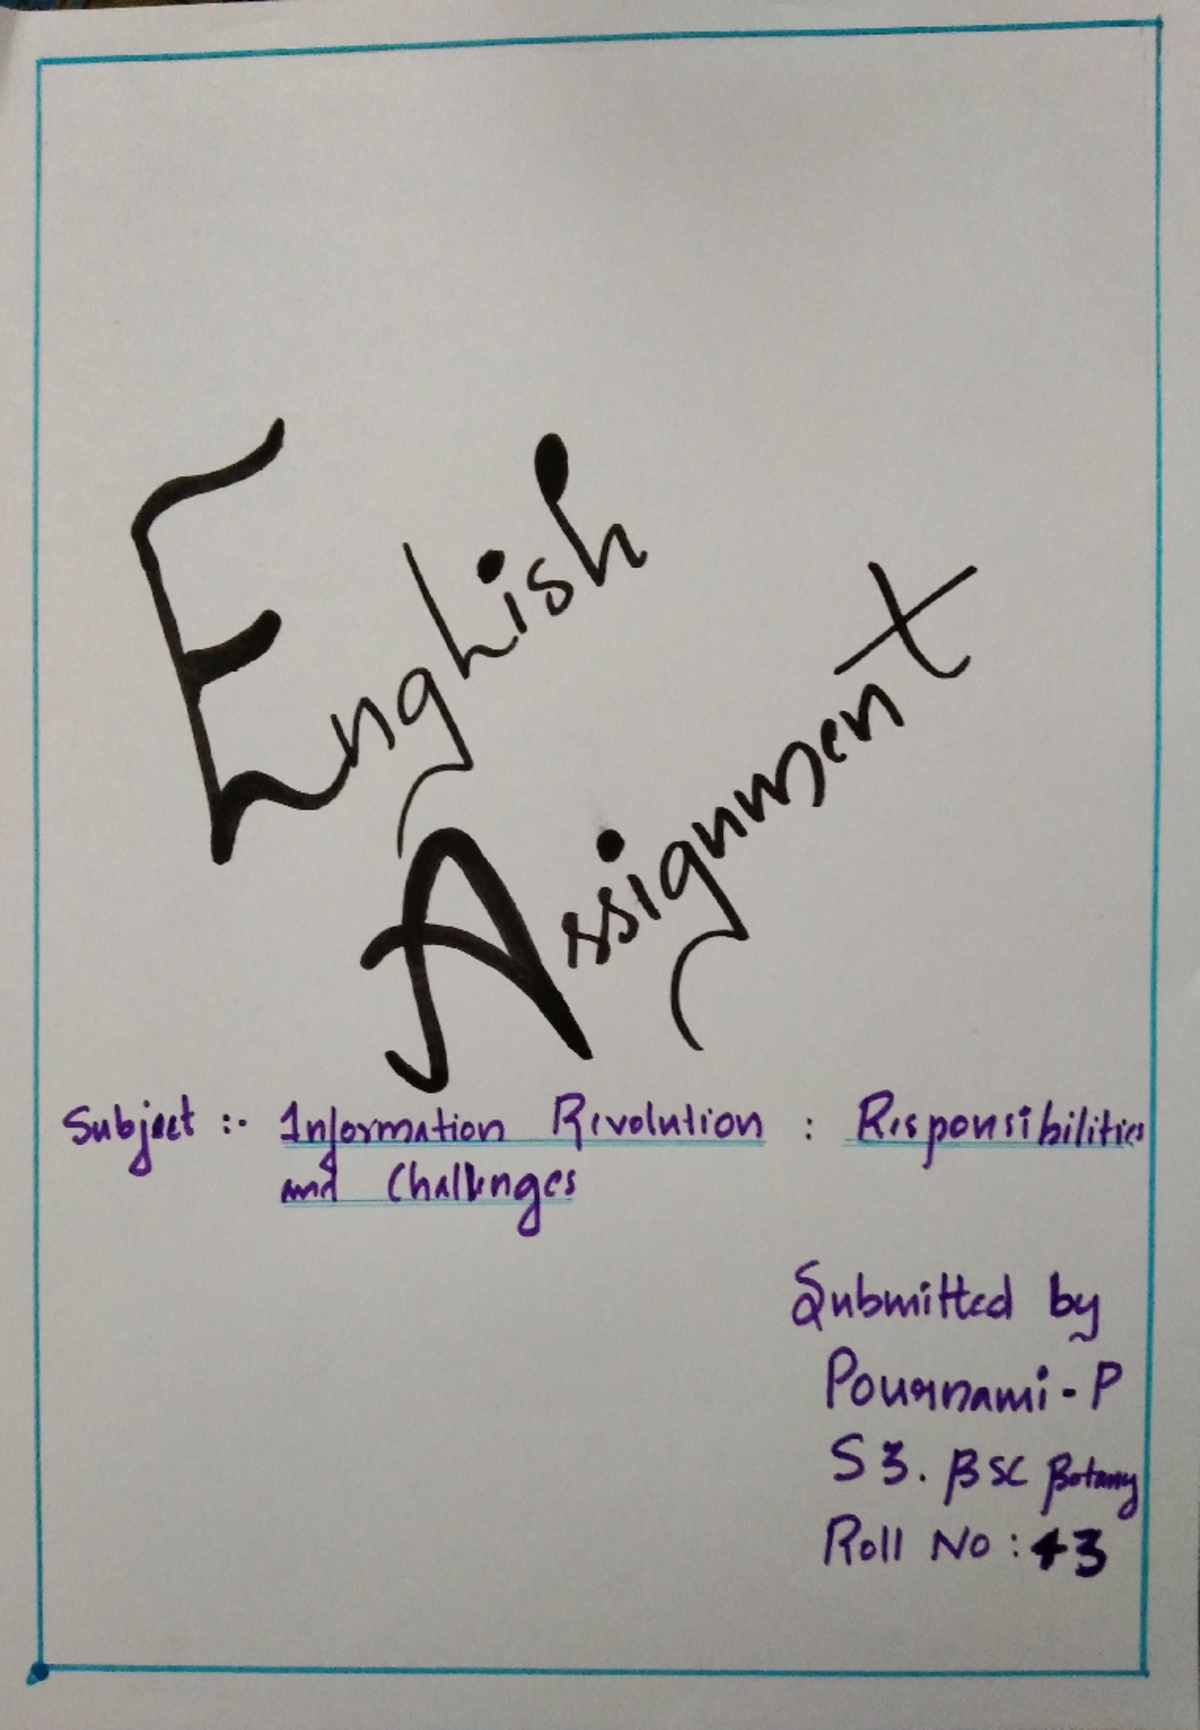 English
Assignment
Subject :- Information Revolution : Responsibilities
and Challenges
Submitted by
Pournami - P
S3. BSC Botany
Roll No : 43